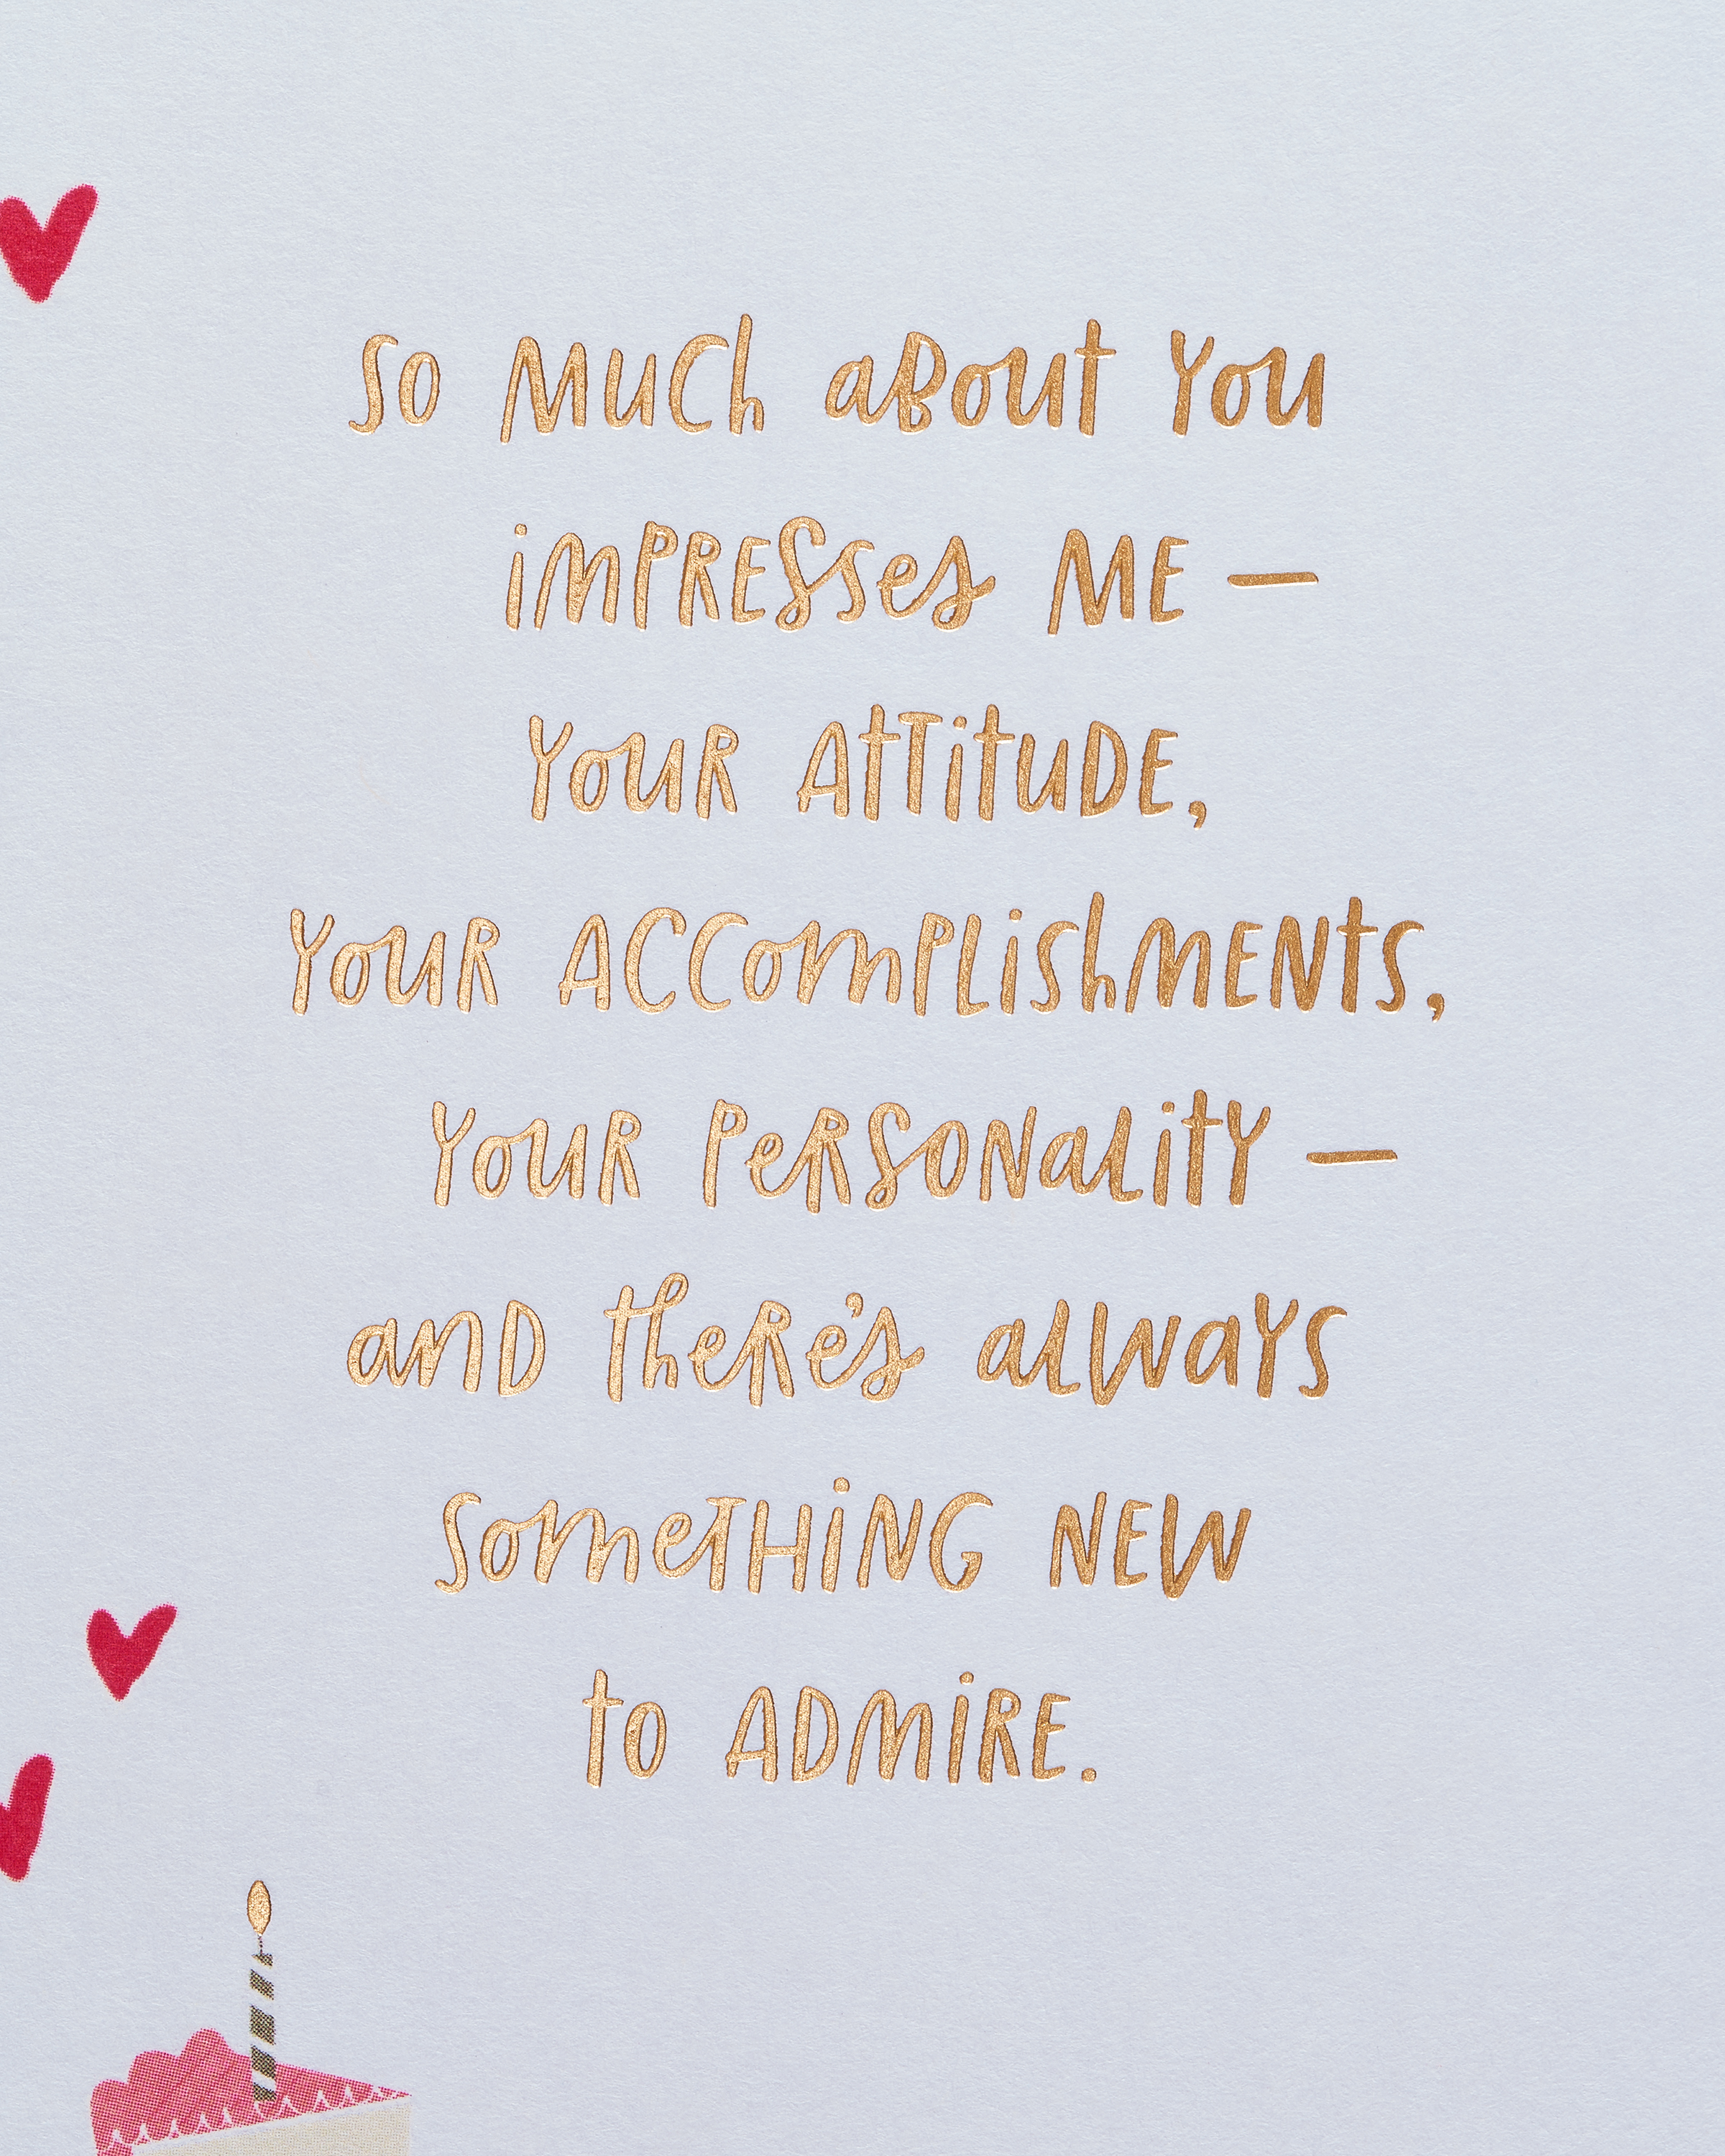 so much about you
impresses me —
your attitude,
your accomplishments,
your personality —
and there's always
something new
to admire.